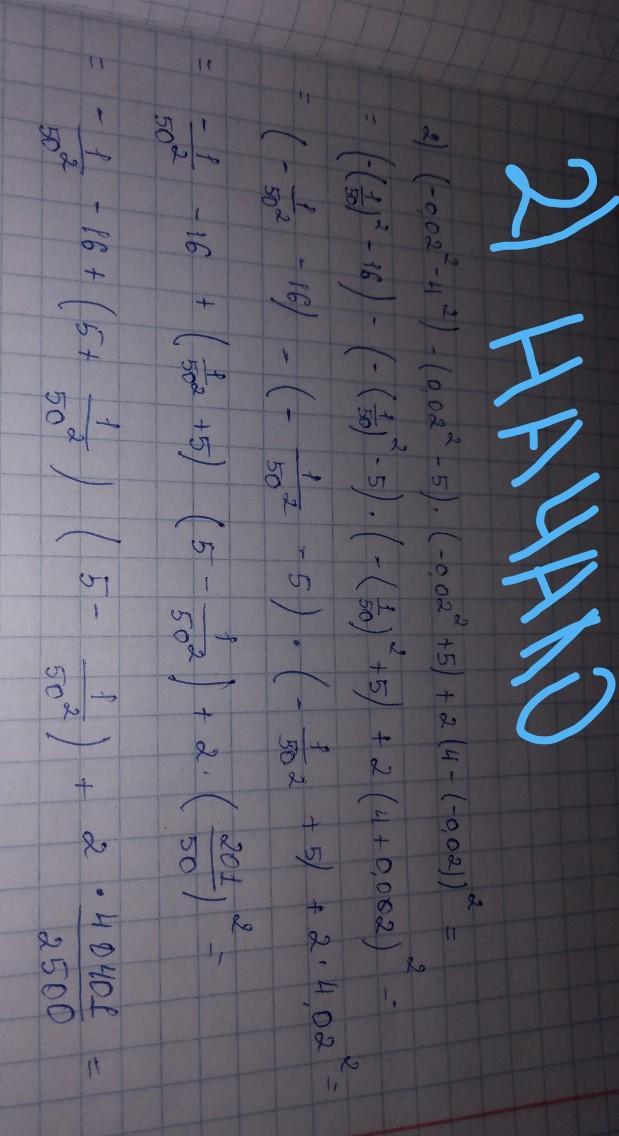 2) НАЧАЛО
2) (-0,02² - 4²) - (0,02² - 5) · (-0,02² + 5) + 2(4 - (-0,02))² =
= (-(1/50)² - 16) - (-(1/50)² - 5) · (-(1/50)² + 5) + 2(4 + 0,002)² =
= (-1/50² - 16) - (-1/50² - 5) · (-1/50² + 5) + 2 · 4,02² =
= -1/50² - 16 + (1/50² + 5) (5 - 1/50²) + 2 · (201/50)² =
= -1/50² - 16 + (5 + 1/50²) (5 - 1/50²) + 2 · 40401/2500 =